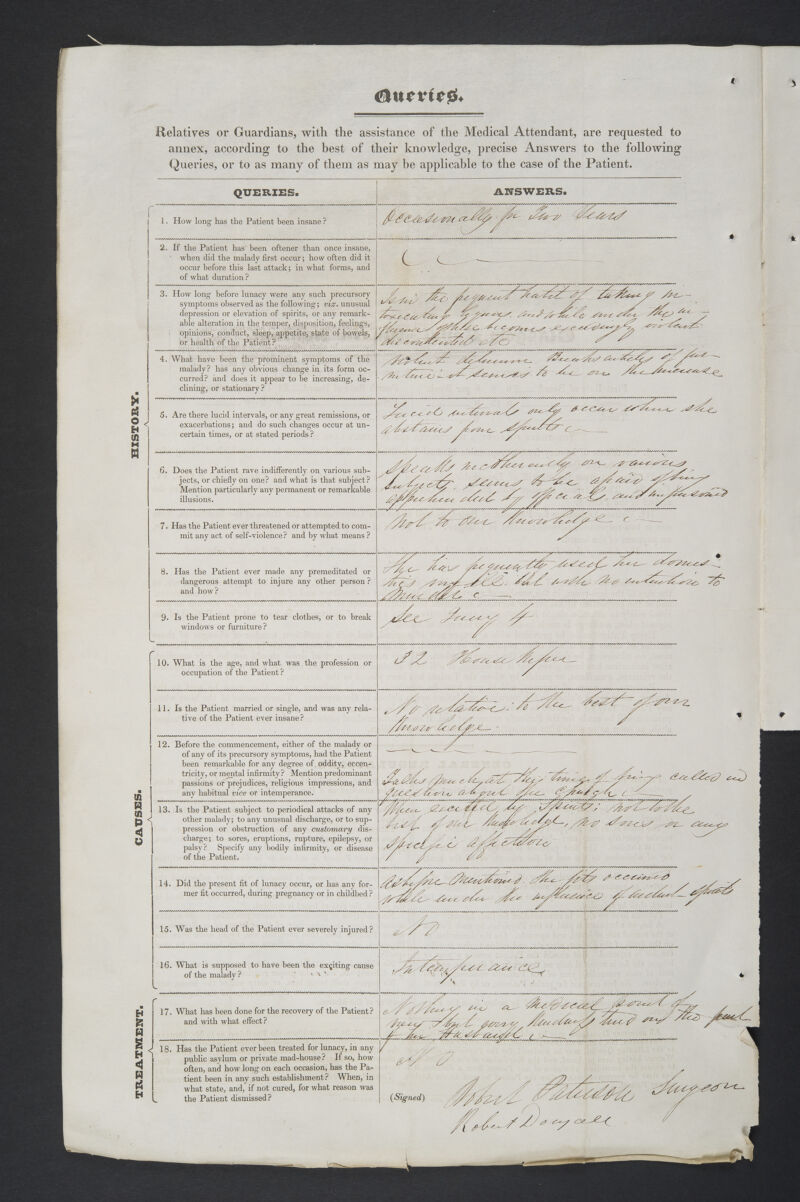 Queries.
Relatives or Guardians, with the assistance of the Medical Attendant, are requested to
annex, according to the best of their knowledge, precise Answers to the following
Queries, or to as many of them as may be applicable to the case of the Patient.
QUERIES.
ANSWERS.
HISTORY.
1. How long has the Patient been insane?
Occasionally for Two Years
2. If the Patient has been oftener than once insane,
when did the malady first occur; how often did it
occur before this last attack; in what forms, and
of what duration?
3. How long before lunacy were any such precursory
symptoms observed as the following; viz. unusual
depression or elevation of spirits, or any remark-
able alteration in the temper, disposition, feelings,
opinions, conduct, sleep, appetite, state of bowels,
or health of the Patient?
Is in the frequent habit of taking in-
toxicating liquors and while under the in-
fluence of these becomes exceedingly violent
discontented etc
4. What have been the prominent symptoms of the
malady? has any obvious change in its form oc-
curred? and does it appear to be increasing, de-
clining, or stationary?
Violent delirium Breaks articles of fur-
niture - it seems to be on the increase
5. Are there lucid intervals, or any great remissions, or
exacerbations; and do such changes occur at un-
certain times, or at stated periods?
Lucid intervals only occur when she
abstains from spirits
6. Does the Patient rave indifferently on various sub-
jects, or chiefly on one? and what is that subject?
Mention particularly any permanent or remarkable
illusions.
Speaks incoherently on various
subjects seems to be afraid of being
apprehended by officials and imprisoned
7. Has the Patient ever threatened or attempted to com-
mit any act of self-violence? and by what means?
Not to our knowledge
8. Has the Patient ever made any premeditated or
dangerous attempt to injure any other person?
and how?
She has frequently used her domes-
tics ill but with no intention to
murder
9. Is the Patient prone to tear clothes, or to break
windows or furniture?
See Query 4
CAUSES.
10. What is the age, and what was the profession or
occupation of the Patient?
32 House Keeper
11. Is the Patient married or single, and was any rela-
tive of the Patient ever insane?
No relation to the best of our
knowledge.
12. Before the commencement, either of the malady or
of any of its precursory symptoms, had the Patient
been remarkable for any degree of oddity, eccen-
tricity, or mental infirmity? Mention predominant
passions or prejudices, religious impressions, and
any habitual vice or intemperance.
Talks much at this time of being called in
question about the church
13. Is the Patient subject to periodical attacks of any
other malady; to any unusual discharge, or to sup-
pression or obstruction of any customary dis-
charge; to sores, eruptions, rupture, epilepsy, or
palsy? Specify any bodily infirmity, or disease
of the Patient.
When excited by spirits; not to the
best of our knowledge, no sores or any
specific affection
14. Did the present fit of lunacy occur, or has any for-
mer fit occurred, during pregnancy or in childbed?
As before mentioned the fits occurred
while under the influence of ardent spirits
15. Was the head of the Patient ever severely injured?
No
16. What is supposed to have been the exciting cause
of the malady?
Intemperance
TREATMENT.
17. What has been done for the recovery of the Patient?
and with what effect?
Nothing in a medical point of
view
kindness tried on the part
of her Husband
18. Has the Patient ever been treated for lunacy, in any
public asylum or private mad-house? If so, how
often, and how long on each occasion, has the Pa-
tient been in any such establishment? When, in
what state, and, if not cured, for what reason was
the Patient dismissed?
No
(Signed)
Robert Paterson Surgeon
Robert Dougall